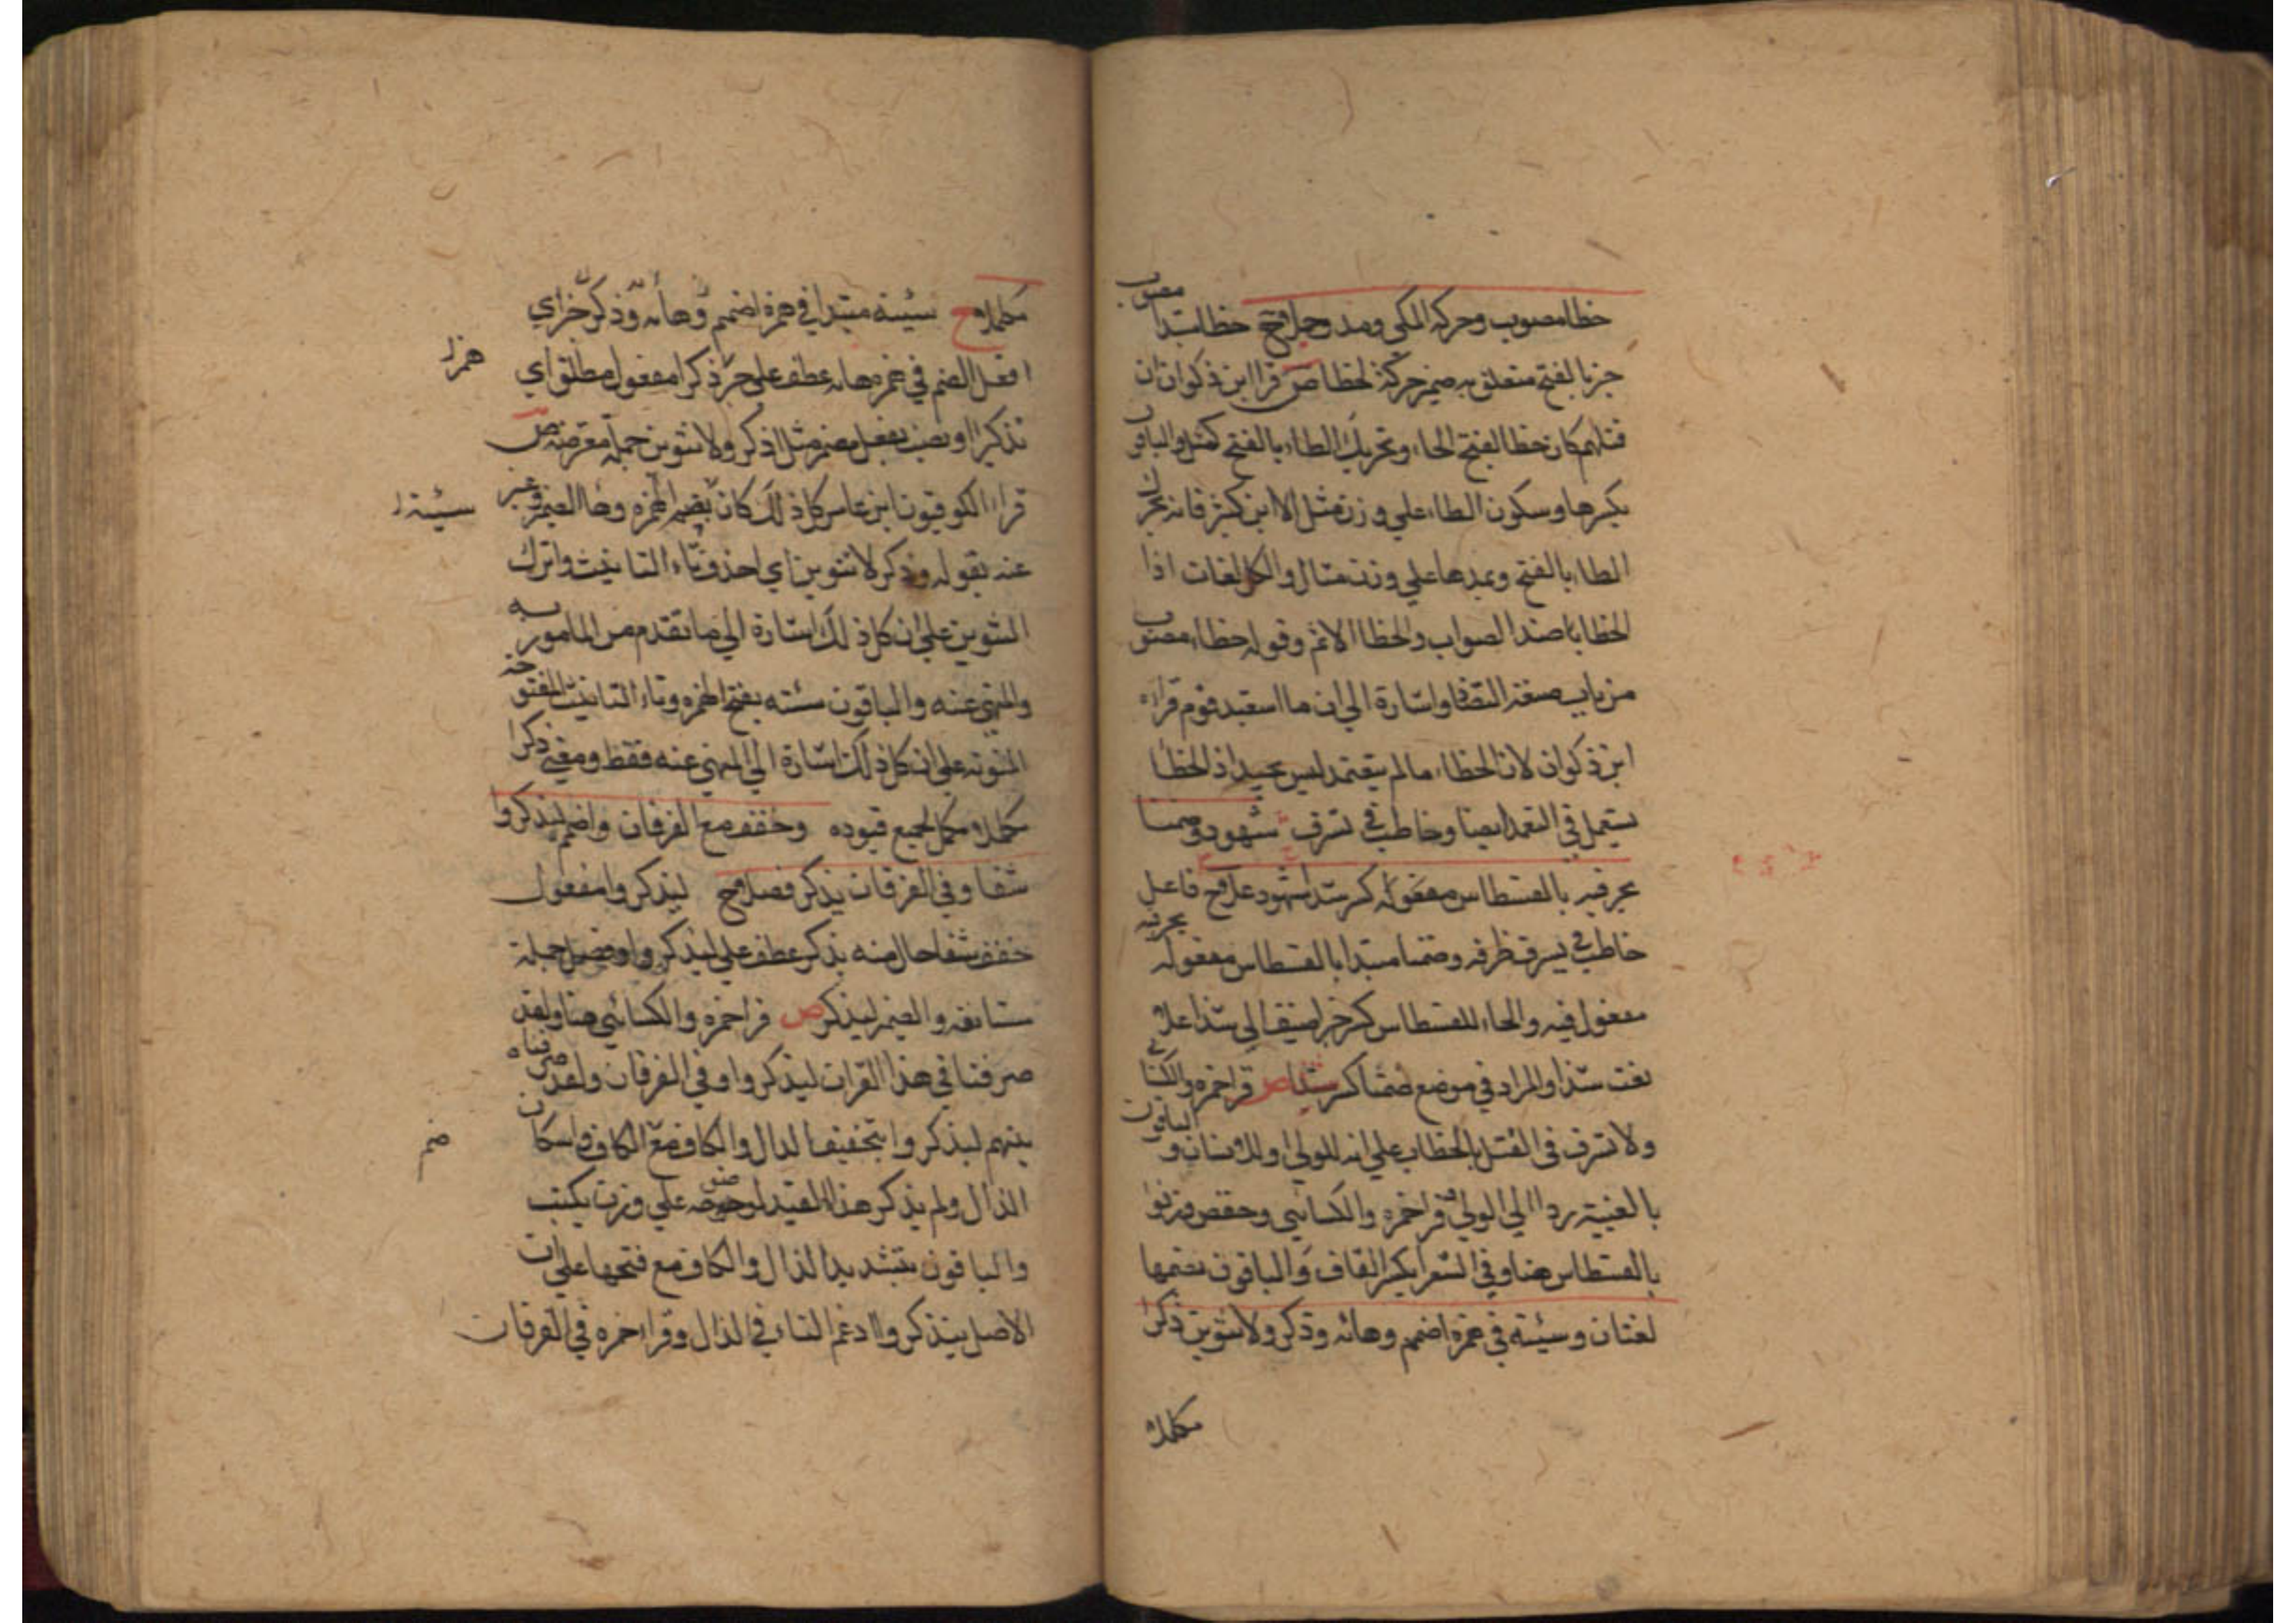 خطا مصوب وحركه المكى ومد وجملا ح خطا مبتدا مصوب
خبر بالفتح متعلق به ضمير حركة لخطا ص قرا ابن ذكوان ان
قتلهم كان خطا بفتح الحاء وتحريك الطاء بالفتح كمثل والباقون
بكسرها وسكون الطاء على وزن مثل الا ابن كثير فانه يحرك
الطاء بالفتح ويمدها على وزن مثال والكل لغات اذا
الخطا ضد الصواب والخطا الاثم وقوله خطاء مصوب
من باب صنعة التضاد اشارة الى ان ما استعبد قوم قراءه
ابن ذكوان لان الخطاء ما لم يتعمد ليس بجيد اذ الخطا
يستعمل في التعمد ايضا وخاطب في تسرف شهود وضمنا
بحرفيه بالقسطاس كسر شذا علا ح فاعل
خاطب في يسرف ظرفه وضمنا مبتدا بالقسطاس مفعوله بحرفيه
مفعول فيه والهاء للقسطاس كسر خبر اضيف الى شذا علا
نعت شذا والمراد في موضع ضمنا كسر شذا ص قرا حمزه والكسائي
ولا تسرف في القتل بالخطاب على انه للولي او للانسان والباقون
بالغيبة ردا الى الولي وقرا حمزه والكسائي وحفص وزنوا
بالقسطاس هنا وفي الشعرا بكسر القاف والباقون بضمها
لغتان وسيئه في همزه اضمم وهائه وذكر ولا تنوين ذكرا
مكملا
مكملا ح سيئه مبتدا في همزه اضمم وهائه وذكر خبر اي
افعل الضم في همزه هائه عطف على همز ذكرا مفعول مطلق اي
همزه
تذكيرا او نصب بفعل مضمر مثل اذكر ولا تنوين جملة معترضه ص
قراء الكوفيون ابن عامر كل ذلك كان سيئه بضم الهمزه وهاء الضمير وعبر
سيئه
عنه بقوله وذكر لا تنوين اي احذف تاء التانيث واترك
التنوين على ان كل ذلك اشارة الى ما تقدم من المامور به
والمنهي عنه والباقون سيئة بفتح الهمزه وتاء التانيث المفتوحة
المنونه على ان كل ذلك اشارة الى المنهي عنه فقط ومعنى ذكرا
مكملا مكمل لجميع قيوده وخفف مع الفرقان واضمم ليذكروا
شفاء وفي الفرقان يذكر فصلا ح ليذكروا مفعول
خفف شفا حال منه يذكر عطف على ليذكروا وفصل جملة
مستانفه والضمير ليذكر ص قرا حمزه والكسائي هنا ولقد
صرفنا في هذا القران ليذكروا وفي الفرقان ولقد صرفناه
بينهم ليذكروا بتخفيف الذال والكاف مع ضم الكاف واسكان
ضم
الذال ولم يذكر هذا القيد لوضوحه على وزن يكتب
والباقون بتشديد الذال والكاف مع فتحهما على ان
الاصل يتذكروا ادغم التاء في الذال وقراء حمزه في الفرقان